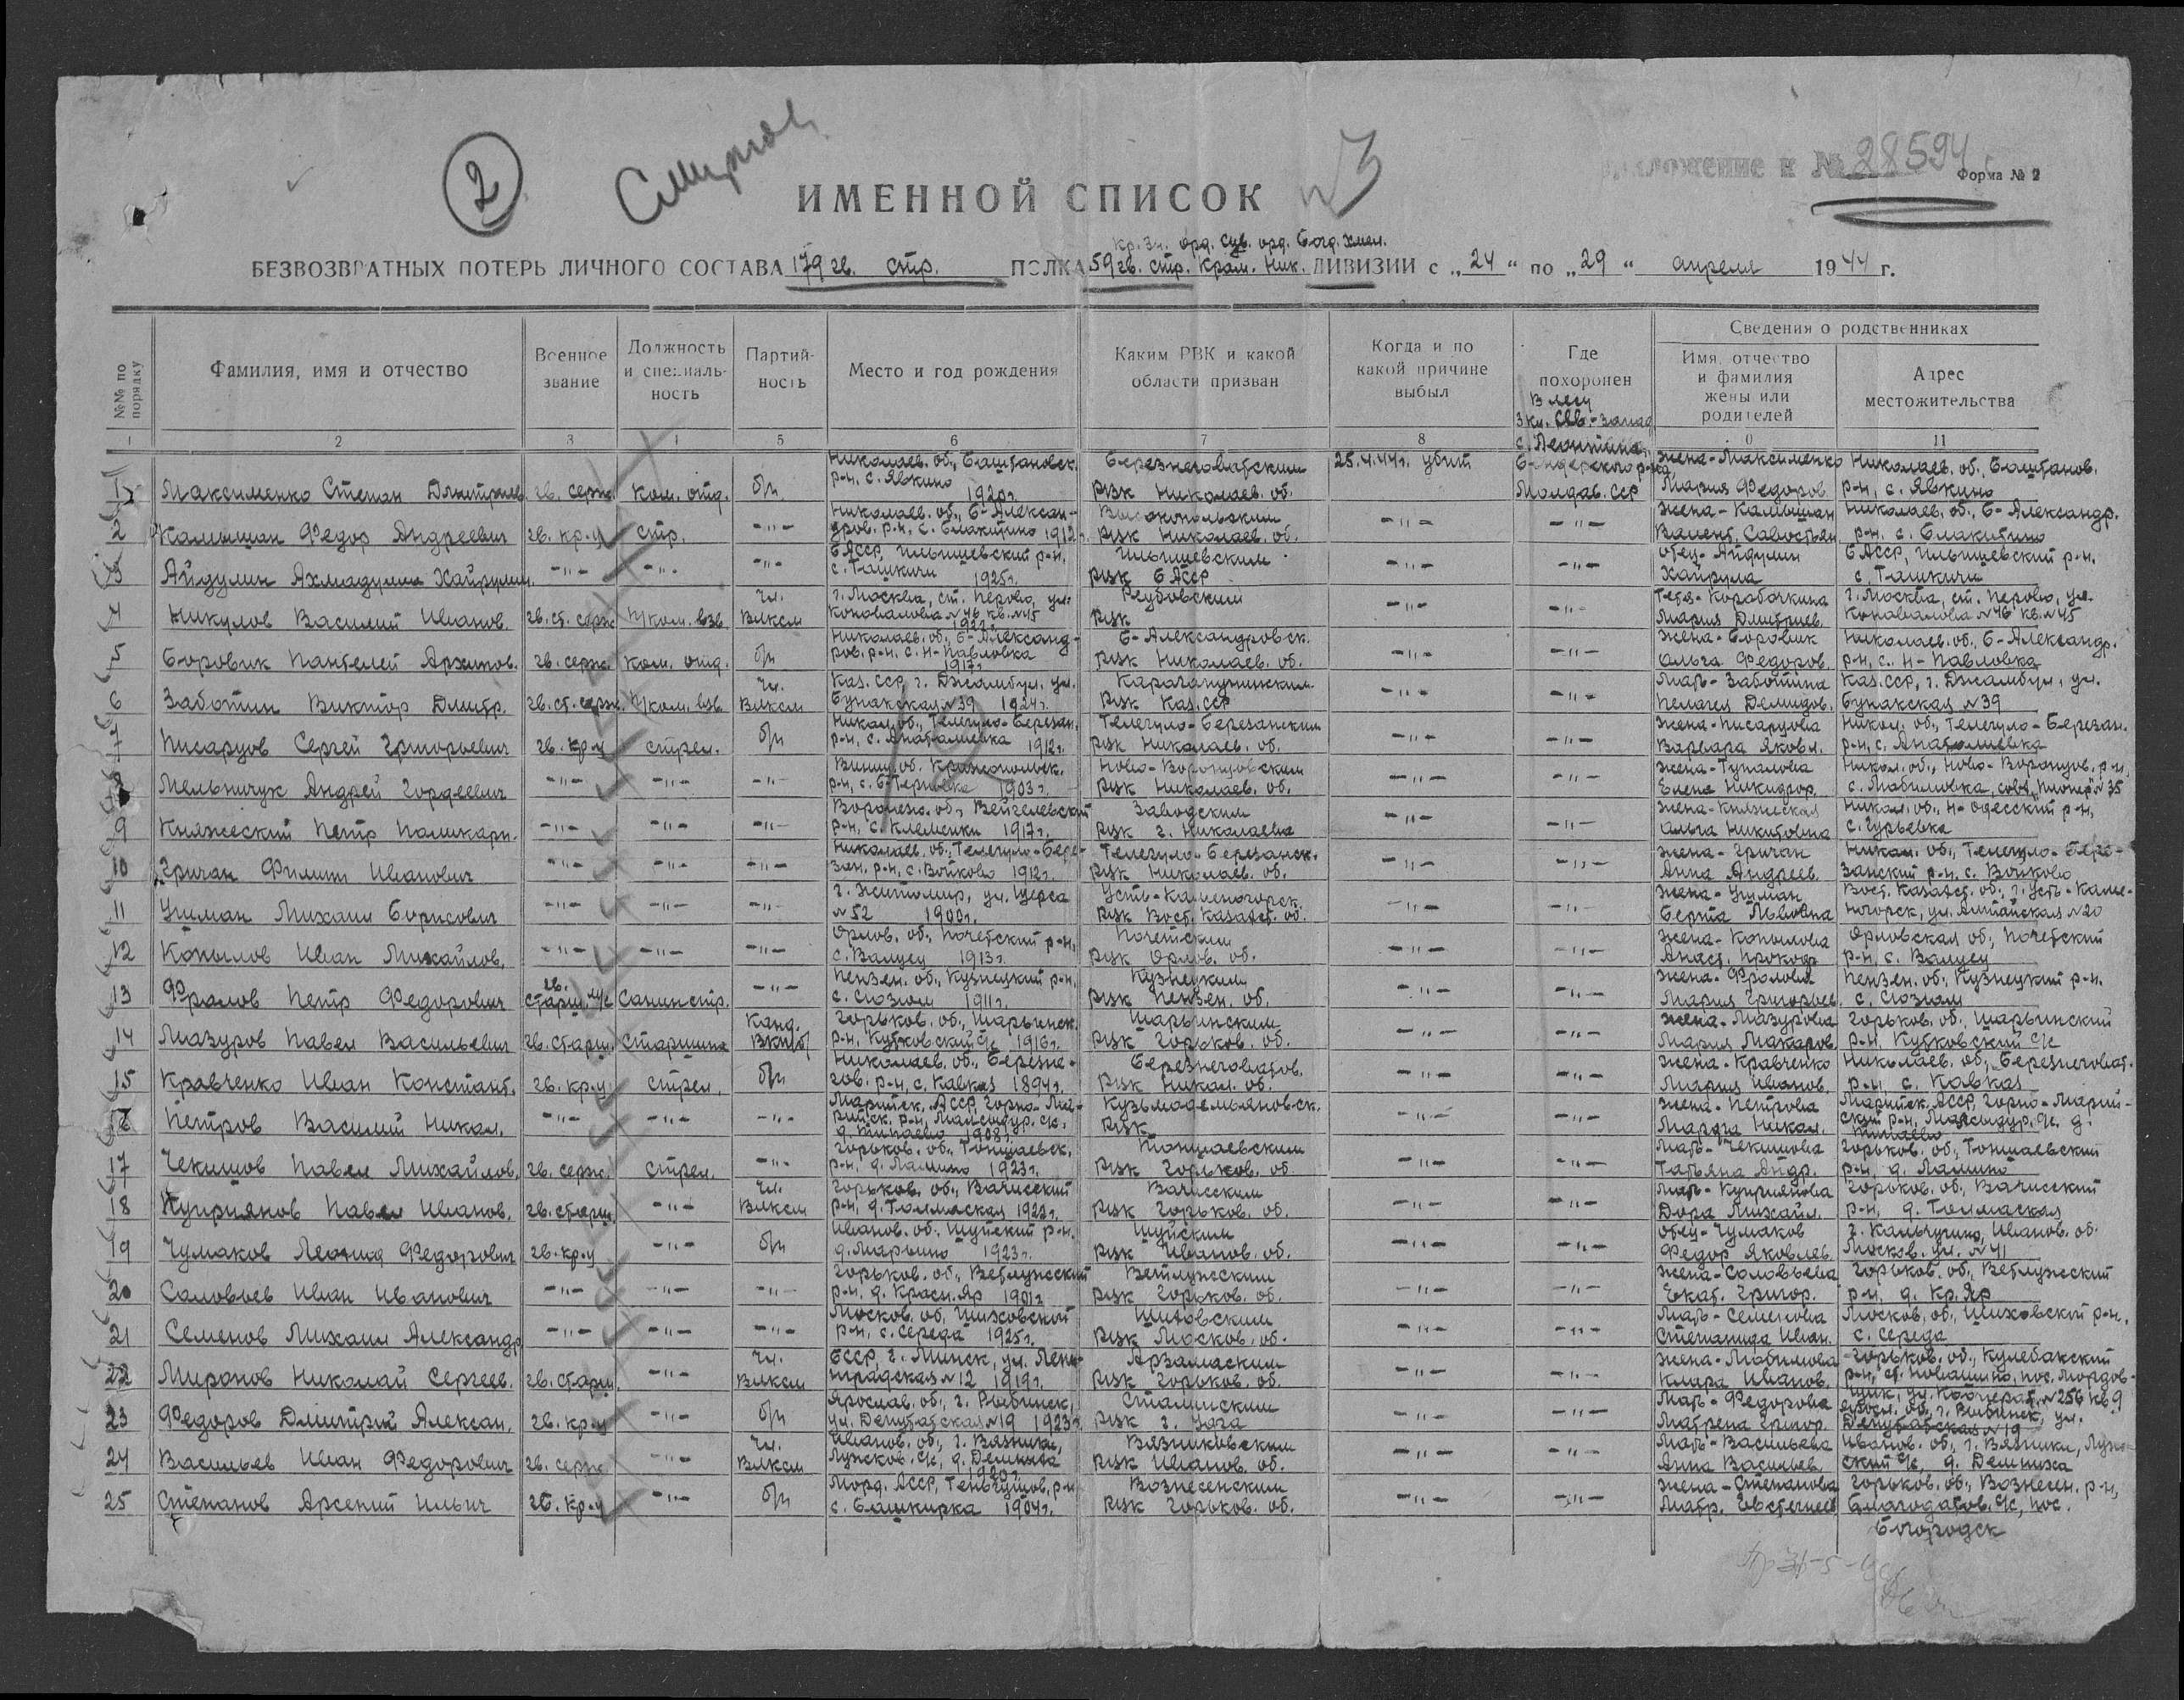 2
Смирнов
ИМЕННОЙ СПИСОК
№ 28594
Форма № 2
Кр. Зн. орд. Сув. орд. Богд. Хмел.
БЕЗВОЗВРАТНЫХ ПОТЕРЬ ЛИЧНОГО СОСТАВА 179 гв. стр. ПОЛКА 59 гв. стр. Крам. Ник. ДИВИЗИИ с „24“ по „29“ апреля 1944 г.
№№ по порядку | Фамилия, имя и отчество | Военное звание | Должность и специальность | Партийность | Место и год рождения | Каким РВК и какой области призван | Когда и по какой причине выбыл | Где похоронен | Сведения о родственниках
Имя, отчество и фамилия жены или родителей | Адрес местожительства
1 2 3 4 5 6 7 8 0 11
1 Максименко Степан Дмитриев. гв. серж. ком. отд. б/п Николаев. об., Баштановск. р-н, с. Явкино 1920г. Березнеговатским РВК Николаев. об. 25.4.44г. убит В лесу 3 км. Сев.-запад с. Леонтина, Бендерского р-на Молдав. ССР Жена-Максименко Мария Федоров. Николаев. об., Баштанов. р-н, с. Явкино
2 Камышан Федор Андреевич гв. кр-ц стр. -"- Николаев. об., Б-Александров. р-н. с. Блакитно 1912г. Высокопольским РВК Николаев. об. -"- -"- Жена-Камышан Валент. Савостьян Николаев. об., Б-Александр. р-н. с. Блакитно
3 Айдулин Ахмадулин Хайрулин. -"- -"- -"- БАССР, Илишевский р-н, с. Ташкичи 1925г. Илишевским РВК БАССР -"- -"- Отец-Айдулин Хайрула БАССР, Илишевский р-н. с. Ташкичи
4 Никулов Василий Иванов. гв. ст. серж П/ком. взв Чл. ВЛКСМ г. Москва, ст. Перово, ул. Коновалова №46 кв. №45 1922г. Реутовским РВК -"- -"- Тетя-Коробочкина Мария Дмитриев. г. Москва, ст. Перово, ул. Коновалова №46 кв. №45
5 Боровик Пантелей Архипов. гв. серж. ком. отд. б/п Николаев. об., Б-Александров. р-н. с. Н-Павловка 1917г. Б-Александровск. РВК Николаев. об. -"- -"- Жена-Боровик Ольга Федоров. Николаев. об., Б-Александр. р-н, с. Н-Павловка
6 Заботин Виктор Дмитр. гв. ст. серж. П/ком. взв. Чл. ВЛКСМ Каз. ССР, г. Джамбул, ул. Бунакская №39 1924г. РВК Каз. ССР -"- -"- Мать-Заботина Пелагея Демидов. Каз. ССР, г. Джамбул, ул. Бунакская №39
7 Писарцов Сергей Григорьевич гв. кр-ц стрел. б/п Никол. об., Телегуло-Березан. р-н, с. Анатолиевка 1912г. Телегуло-Березанским РВК Николаев. об. -"- -"- Жена-Писарцова Варвара Яковл. Никол. об., Телегуло-Березан. р-н, с. Анатолиевка
8 Мельничук Андрей Гордеевич -"- -"- -"- Винни. об. Краснопольск. р-н, с. Б-Терновка 1903г. Ново-Воронцовским РВК Николаев. об. -"- -"- Жена-Тупалова Елена Никифор. Никол. об., Ново-Воронцов. р-н,
9 Княжеский Петр Поликарп. -"- -"- -"- Воронеж. об., Вейделевский р-н, с. Клеменки 1917г. Заводским РВК г. Николаева -"- -"- Жена-Княжеская Ольга Никитовна Никол. об., Н-Одесский р-н, с. Гурьевка
10 Гричан Филипп Иванович -"- -"- -"- Николаев. об., Телегуло-Березан. р-н. с. Войково 1912г. Телегуло-Березанск. РВК Николаев. об. -"- -"- Жена-Гричан Анна Андреев. Никол. об., Телегуло-Березанский р-н. с. Войково
11 Уцман Михаил Борисович -"- -"- -"- г. Житомир, ул. Щерса №52 1900г. Усть-Каменогорск. РВК Вост. Казахст. об. -"- -"- Жена-Уцман Берта Львовна Вост. Казахст. об., г. Усть-Каменогорск, ул. Алтайская №20
12 Копылов Иван Михайлов. -"- -"- -"- Орлов. об., Почепский р-н, с. Валуец 1913г. Почепским РВК Орлов. об. -"- -"- Жена-Копылова Анаст. Прокоф Орловская об., Почепский р-н, с. Валуец
13 Фролов Петр Федорович гв. старш. м/с Санинстр. -"- Пензен. об., Кузнецкий р-н, с. Сюзюм 1911г. Кузнецким РВК Пензен. об. -"- -"- Жена-Фролова Мария Григорьев. Пензен. об., Кузнецкий р-н. с. Сюзюм
14 Мазуров Павел Васильевич гв. старш. Старшина Канд. ВКП/б/ Горьков. об., Шарьинск. р-н, Кутковский с/с 1916г. Шарьинским РВК Горьков. об. -"- -"- Жена-Мазурова Мария Макаров. Горьков. об., Шарьинский р-н, Кутковский с/с
15 Кравченко Иван Констант. гв. кр-ц стрел. б/п Николаев. об., Березнегов. р-н, с. Кавказ 1894г. Березнеговатов. РВК Никол. об. -"- -"- Жена-Кравченко Мария Иванов. Николаев. об., Березнеговат. р-н с. Кавказ
16 Петров Василий Никол. -"- -"- -"- Марийск. АССР, Горно-Марийск. р-н, 1908г. Кузьмодемьяновск. РВК -"- -"- Жена-Петрова Марфа Никол. Марийск. АССР, Горно-Марийский р-н,
17 Чекишов Павел Михайлов. гв. серж. стрел. -"- Горьков. об., Тоншаевск. р-н, д. Лапино 1923г. Тоншаевским РВК Горьков. об -"- -"- Мать-Чекишова Татьяна Андр. Горьков. об., Тоншаевский р-н, д. Лапино
18 Куприянов Павел Иванов. гв. старш. -"- Чл. ВЛКСМ Горьков. об., Вачисский р-н, д. Толмаская 1922г. Вачисским РВК Горьков. об. -"- -"- Мать-Куприянова Дора Михайл. Горьков. об., Вачисский р-н, д. Толмаская
19 Чумаков Леонид Федорович гв. кр-ц -"- б/п Иванов. об. Шуйский р-н. д. Марьино 1923г. Шуйским РВК Иванов. об. -"- -"- Отец-Чумаков Федор Яковлев. г. Кальчугино, Иванов. об. Москов. ул. №41
20 Соловьев Иван Иванович -"- -"- -"- Горьков. об., Ветлужский р-н, д. Красн. Яр 1901г. Ветлужским РВК Горьков. об. -"- -"- Жена-Соловьева Екат. Григор. Горьков. об., Ветлужский р-н, д. Кр. Яр
21 Семенов Михаил Александр -"- -"- -"- Москов. об. Шиховский р-н, с. Середа 1925г. Шиховским РВК Москов. об. -"- -"- Мать-Семенова Степанида Иван. Москов. об., Шиховский р-н, с. Середа
22 Миронов Николай Сергеев. гв. старш. -"- Чл. ВЛКСМ БССР, г. Минск, ул. Ленинградская №12 1919г. Арзамаским РВК Горьков. об. -"- -"- Жена-Мобилова Клара Иванов. Горьков. об., Кулебакский р-н, ст. Новашино, пос. №256 кв. 9
23 Федоров Дмитрий Алексан. гв. кр-ц -"- б/п Ярослав. об., г. Рыбинск, ул. Депутатская №19 1923г. Сталинским РВК г. Уфа -"- -"- Мать-Федорова Матрена Григор. Яросл. об., г. Рыбинск, ул. Депутатская №19
24 Васильев Иван Федорович гв. серж. -"- Чл. ВЛКСМ Иванов. об., г. Вязники, Лужсков. с/с, д. Демиха 1920г. Вязниковским РВК Иванов. об. -"- -"- Мать-Васильева Анна Васильев. Иванов. об., г. Вязники,
25 Степанов Арсений Ильич гв. кр-ц -"- б/п Морд. АССР, Теньгушов. р-н с. Башкирка 1904г. Вознесенским РВК Горьков. об. -"- -"- Жена-Степанова Матр. Евстегнеев Горьков. об., Вознесен. р-н, Благодатов. с/с, пос. Богородск